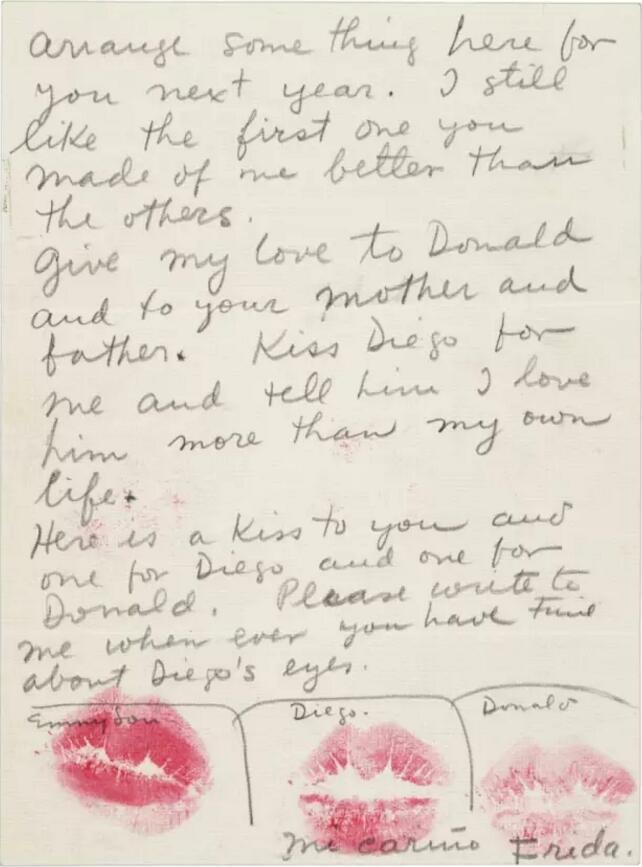 arrange some thing here for
you next year. I still
like the first one you
made of me better than
the others.
Give my love to Donald
and to your mother and
father. Kiss Diego for
me and tell him I love
him more than my own
life.
Here is a Kiss to you and
one for Diego and one for
Donald. Please write to
me when ever you have time
about Diego's eyes.
Emmy Lou Diego. Donald
Mi cariño Frida.